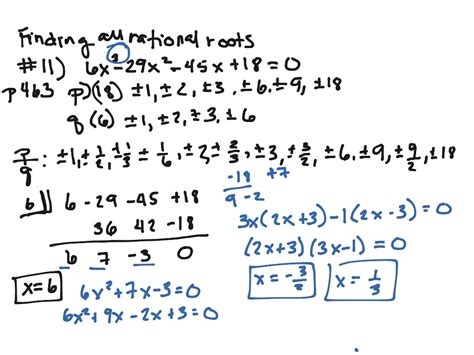 Finding all rational roots
#11) 6x³-29x²-45x+18=0
p463 p)(18) ±1, ±2, ±3, ±6, ±9, ±18
q (6) ±1, ±2, ±3, ±6
p/q: ±1, ±1/2, ±1/3, ±1/6, ±2, ±2/3, ±3, ±3/2, ±6, ±9, ±9/2, ±18
6⌋ 6 -29 -45 +18
36 42 -18
6 7 -3 0
x=6
6x²+7x-3=0
6x²+9x-2x+3=0
-18 +7
9 -2
3x(2x+3)-1(2x-3)=0
(2x+3)(3x-1)=0
x=-3/2 x=1/3